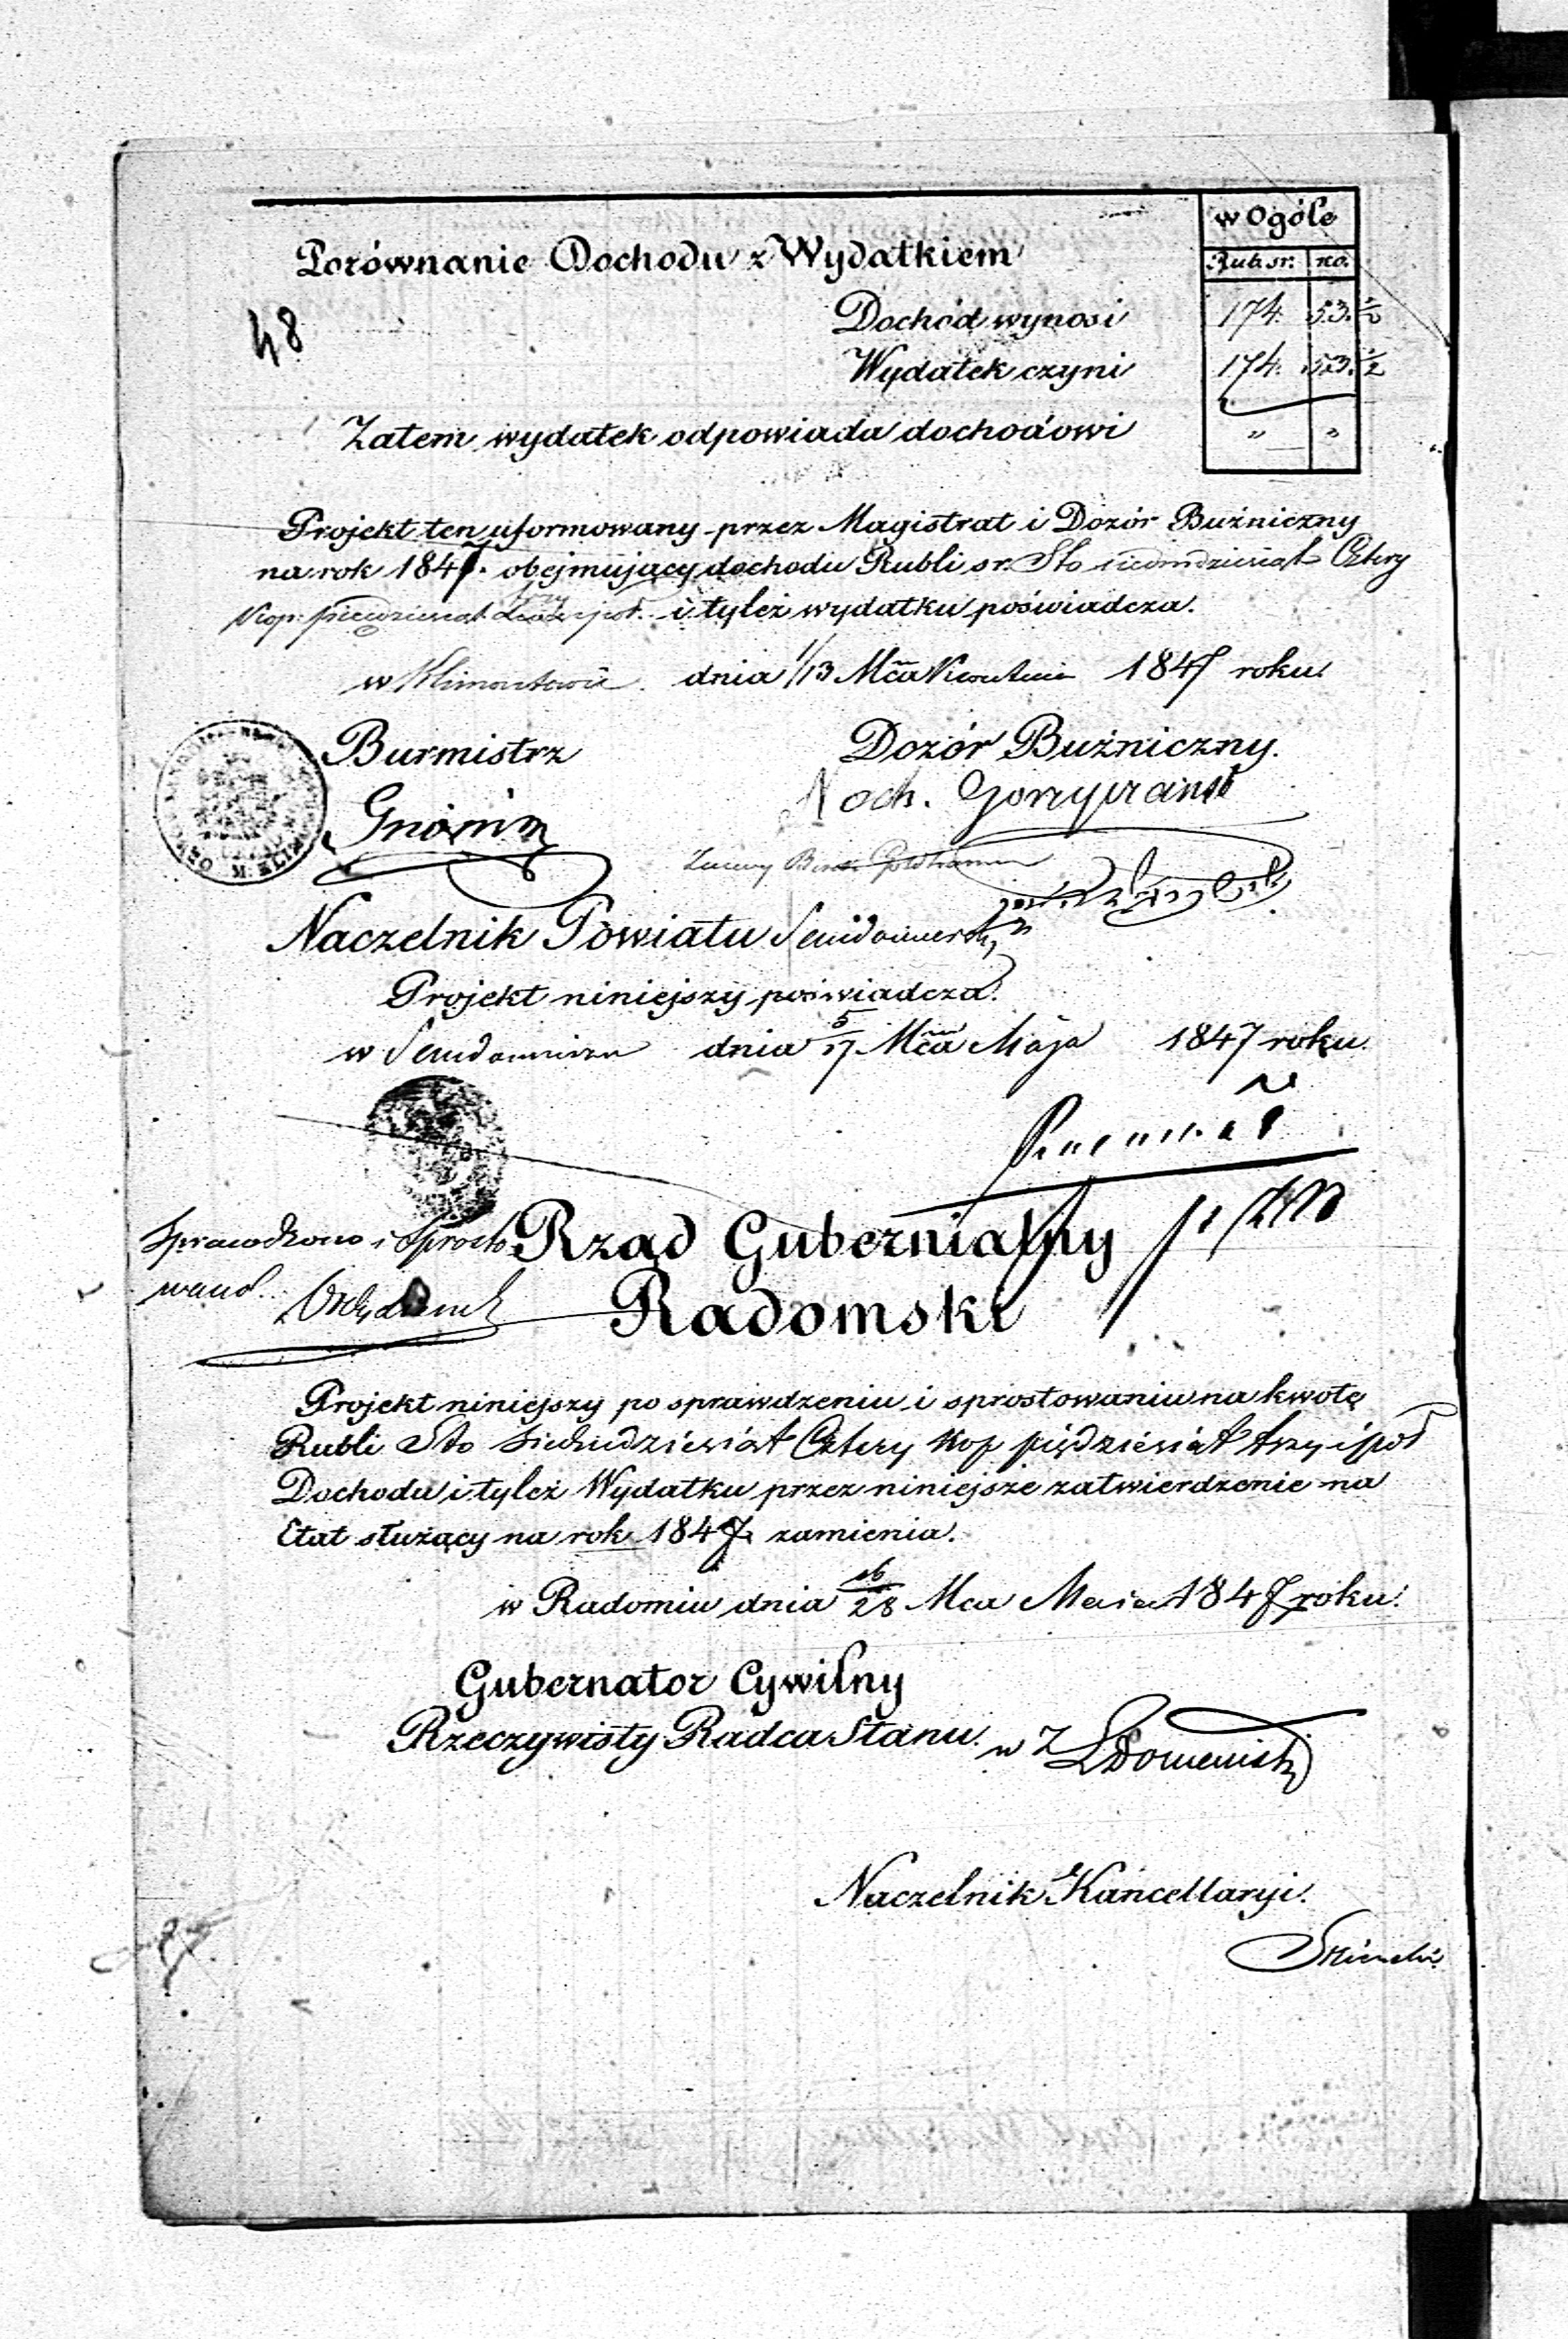 w Ogóle
Porównanie Dochodu z Wydatkiem
Rub. sr. ko.
48
Dochód wynosi 174. 53. 1/2
Wydatek czyni 174. 53. 1/2
Zatem wydatek odpowiada dochodowi " "
Projekt ten uformowany przez Magistrat i Dozór Bużniczny
na rok 1847. obejmujący dochodu Rubli sr. Sto siedmdziesiąt Cztery
Kop: pięćdziesiąt trzy i pół. i tyleż wydatku poświadcza.
w Klimontowie dnia 1/13 Mca Kwietnia 1847 roku.
Burmistrz Dozór Bużniczny.
Noch.
Naczelnik Powiatu Sandomierski
Projekt niniejszy poświadcza.
w Sandomierzu dnia 5/17 Mca Maja 1847 roku.
Sprawdzono i Sprosto
wano
Rząd Gubernialny
Radomski
Projekt niniejszy po sprawdzeniu i sprostowaniu na kwotę
Rubli Sto Siedmdziesiąt Cztery Kop pięćdziesiąt trzy i pół
Dochodu i tyleż Wydatku przez niniejsze zatwierdzenie na
Etat służący na rok 1847. zamienia.
w Radomiu dnia 16/28 Mca Maia 1847 roku.
Gubernator Cywilny
Rzeczywisty Radca Stanu. w Z
Naczelnik Kancellaryi.